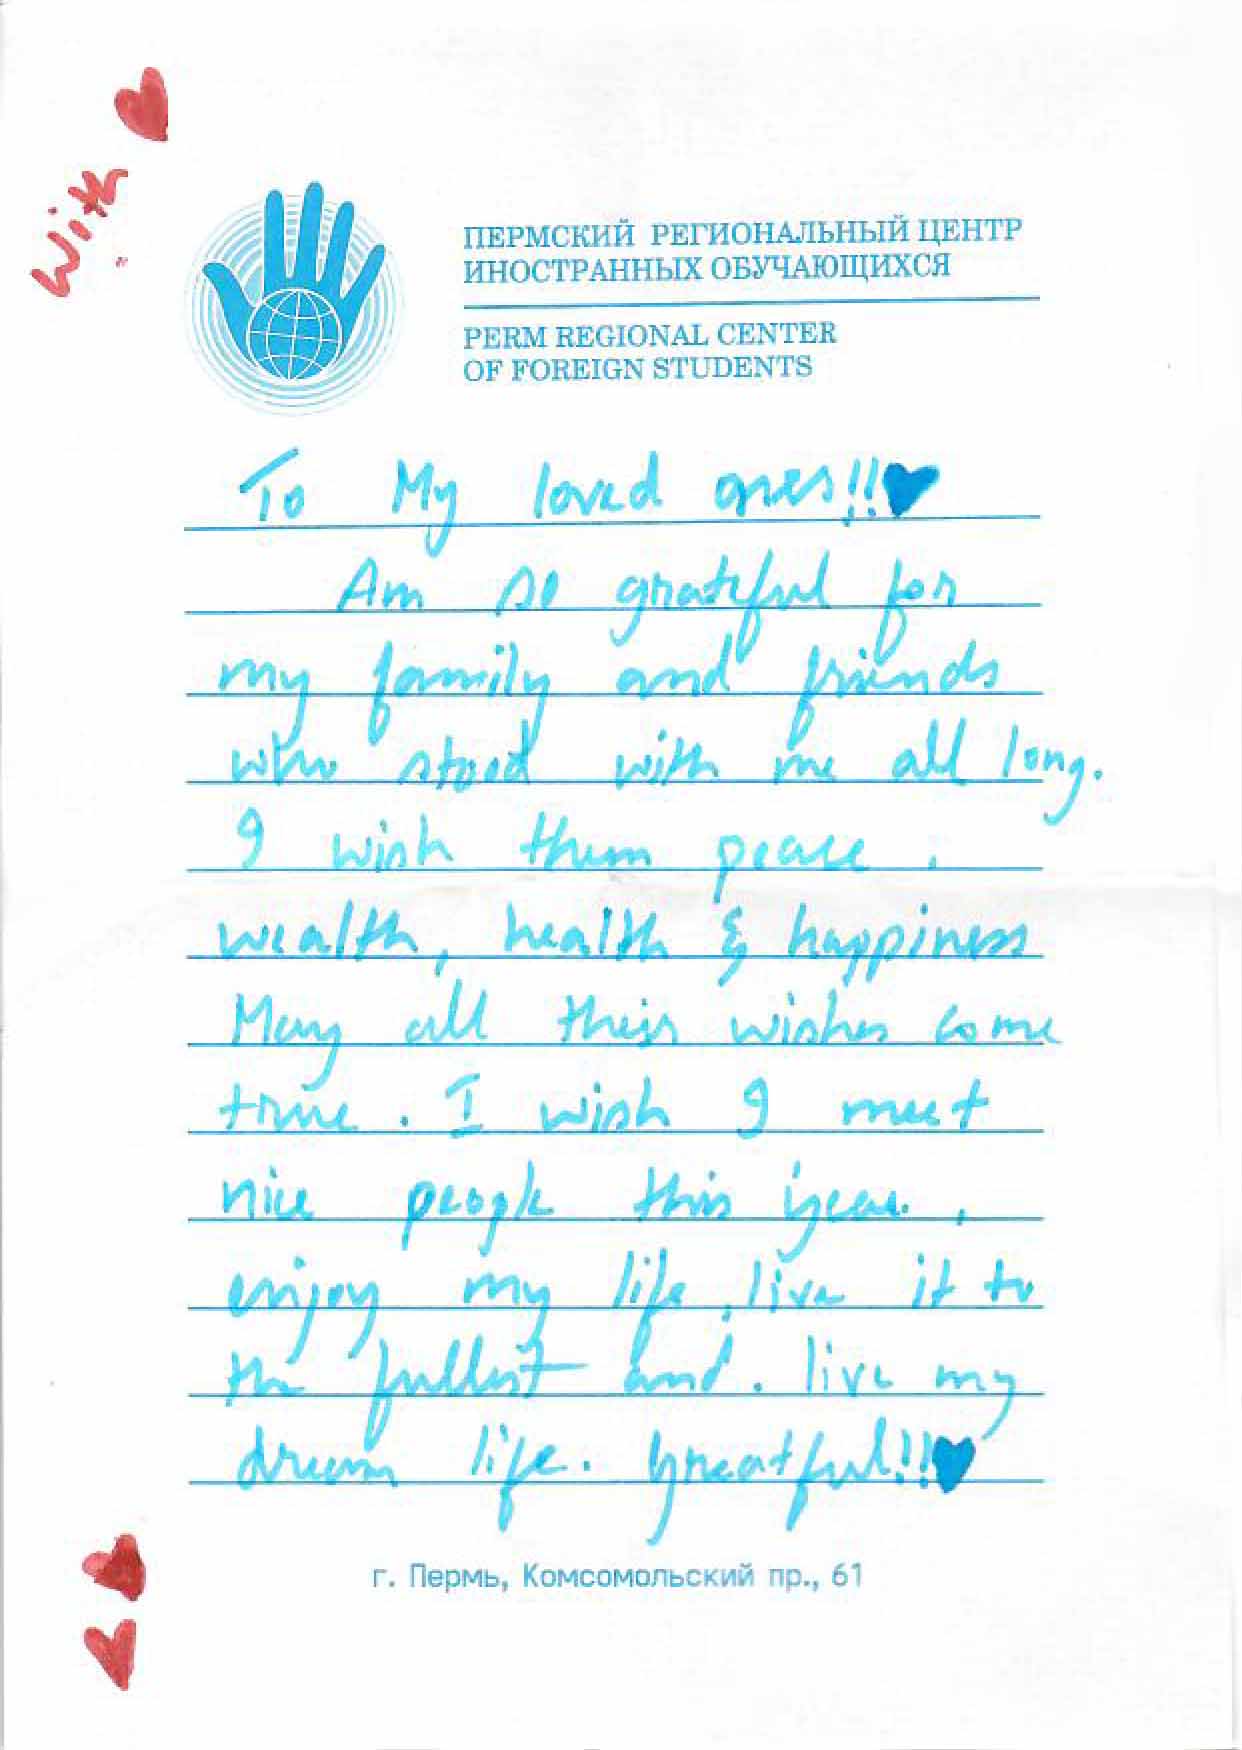 With
ПЕРМСКИЙ РЕГИОНАЛЬНЫЙ ЦЕНТР
ИНОСТРАННЫХ ОБУЧАЮЩИХСЯ
PERM REGIONAL CENTER
OF FOREIGN STUDENTS
To My loved ones!!
Am so grateful for
my family and friends
who stood with me all long.
I wish them peace,
wealth, health & happiness
May all their wishes come
true. I wish I meet
nice people this year,
enjoy my life, live it to
the fullest and. live my
dream life. Greatful!!
г. Пермь, Комсомольский пр., 61